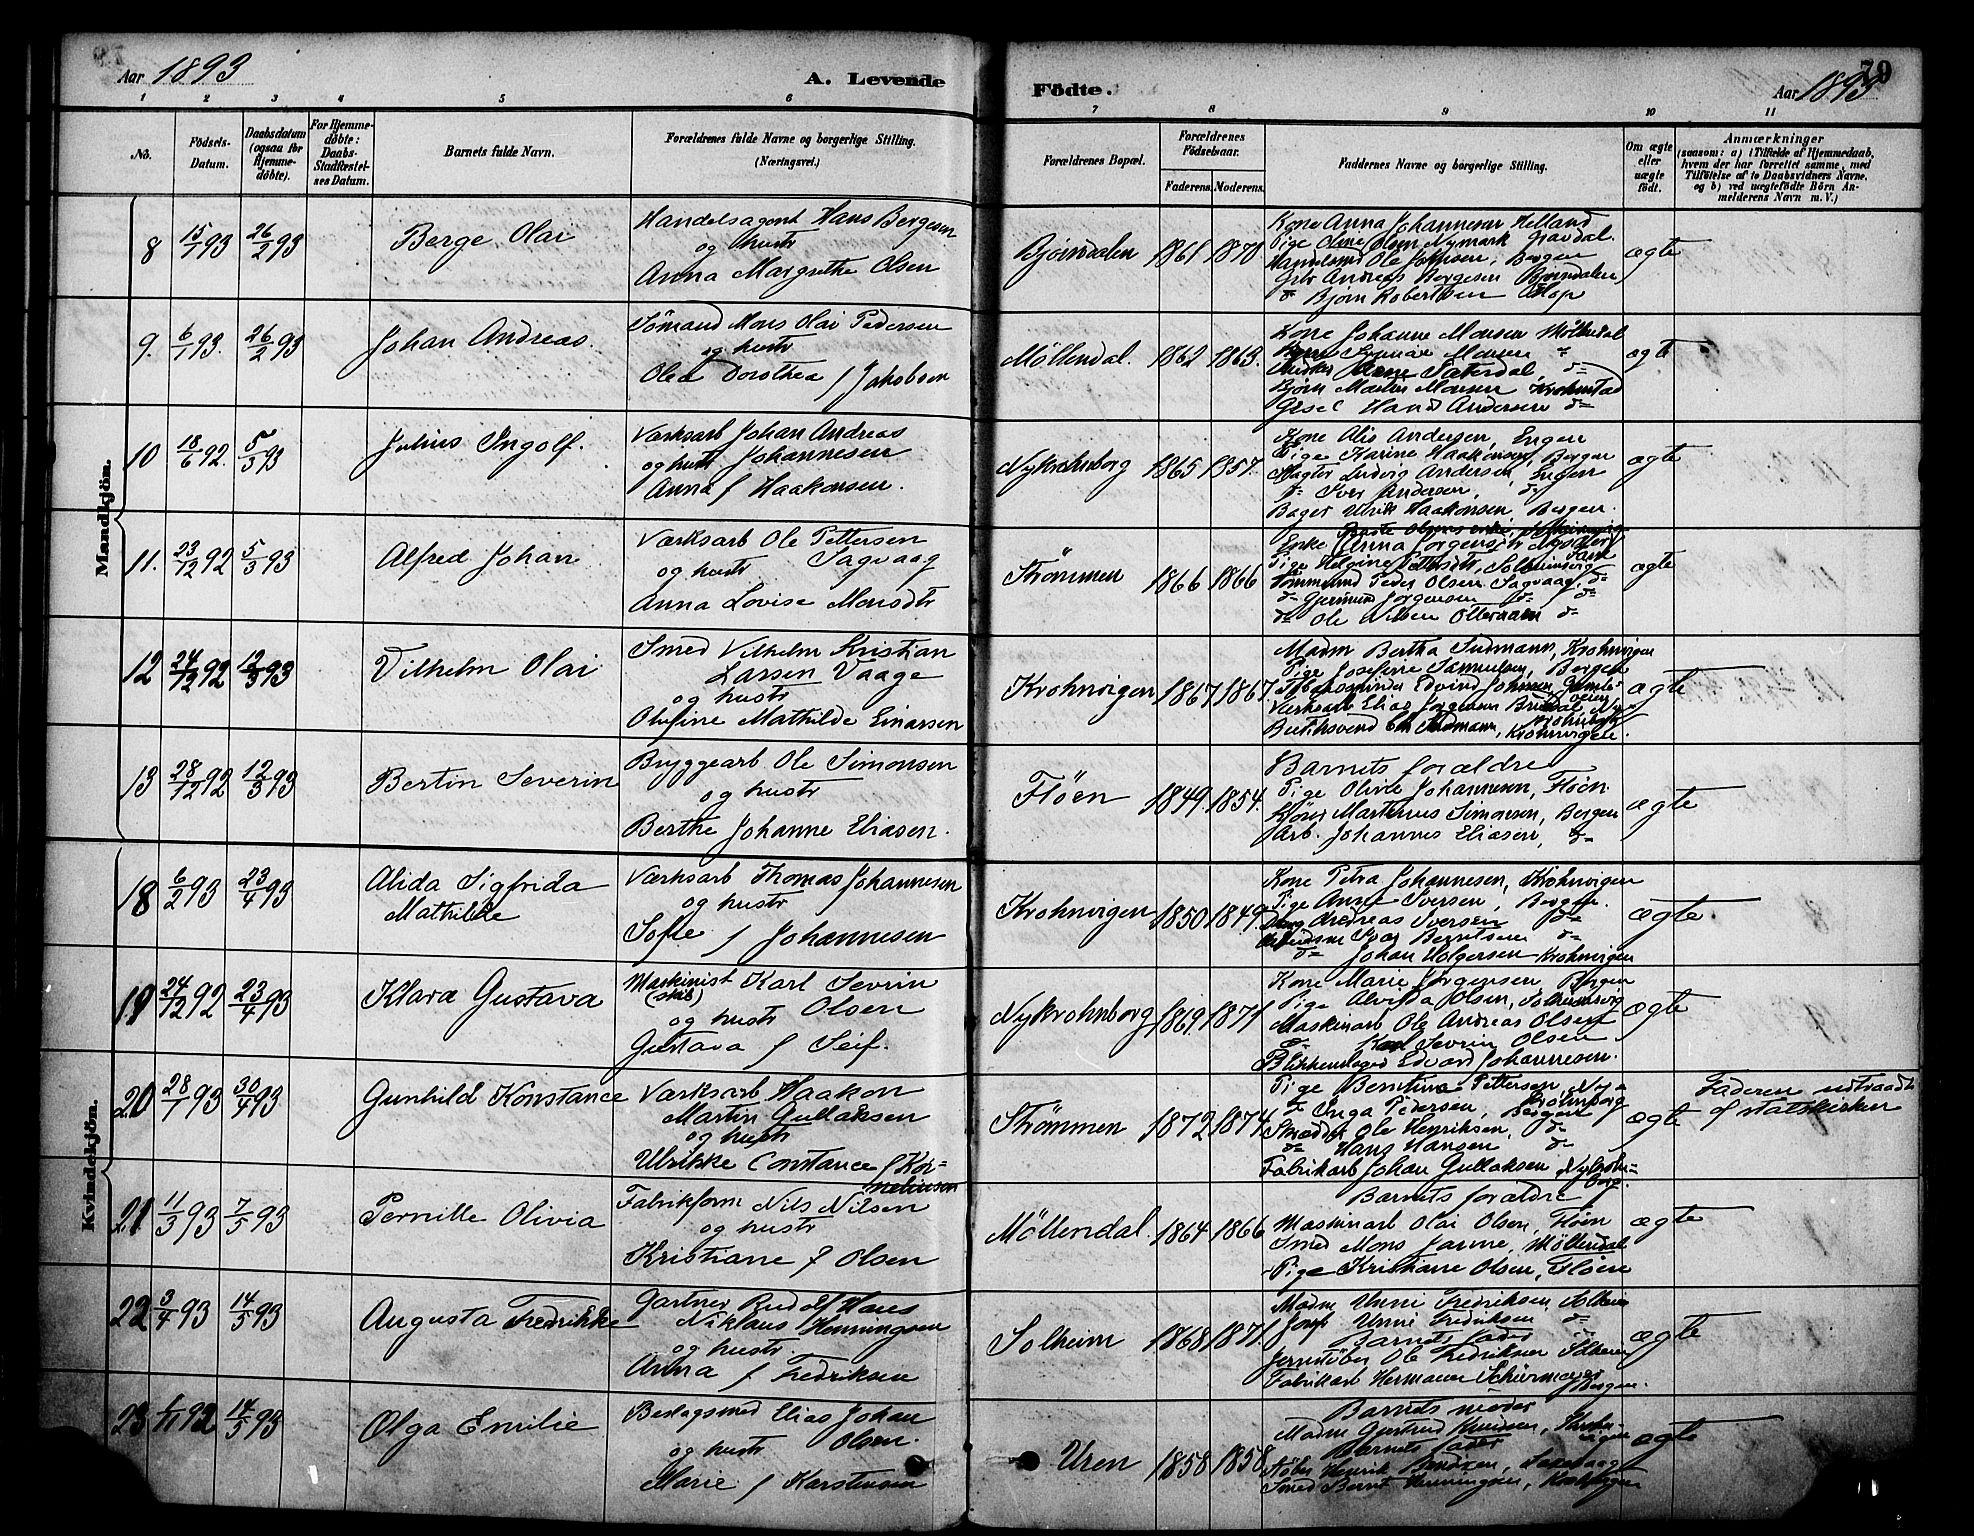 Aar 1893
A. Levende
Födte.
79
Aar 1893
1 2 3 4 5 6 7 8 9 10 11
No.
Födsels-
Datum.
Daabsdatum
(ogsaa for
Hjemme-
döbte).
For Hjemme-
döbte:
Daabs-
Stadfæstel-
ses Datum.
Barnets fulde Navn.
Forældrenes fulde Navne og borgerlige Stilling.
(Næringsvei.)
Forældrenes Bopæl.
Forældrenes
Födselsaar.
Faderens. Moderens.
Faddernes Navne og borgerlige Stilling.
Om ægte
eller
uægte
födt.
Anmærkninger
(saasom: a) i Tilfælde af Hjemmedaab,
hvem der har forrettet samme, med
Tilföielse af to Daabsvidners Navne,
og b) ved uægtefödte Börn An-
melderens Navn m. V.)
Mandkjön.
8 15/1 93 26/2 93
Berge Olai
Handelsagent Hans Bergesen
og hustr
Anna Margrethe Olsen
Bjørndalen 1861 1870
Kone Anna Johannesen Helland
Pige Oline Olsen Nymark Gravdal.
Ole Johnsen, Bergen
Gbr Andreas Bergesen Bjørndalen
d= Bjørn Robertsen
ægte
9. 6/1 93. 26/2 93
Johan Andreas.
Sömand Mons Olai Pedersen
og hustr
Olea Dorothea f Jakobsen
Möllendal. 1862 1863.
Kone Johanne Monsen Möllendal
Monsen d=
d=
Bjørn Martin Monsen Krohnstad
Gesel Hans Andersen d=
ægte
10 18/6 92. 5/3 93
Julius Ingolf.
Værksarb Johan Andreas
og hustr Johannesen
Anna f Haakonsen.
Nykrohnborg 1865 1857.
Kone Alis Andersen, Engen
Pige Karine Haakonsen, Bergen
Ludvig Andersen, Engen
d= Iver Andersen, d=
Bager Ulrik Haakonsen Bergen.
ægte
11. 23/12 92 5/3 93
Alfred Johan
Værksarb Ole Pettersen
og hustr Sagvaag
Anna Lovise Monsdtr
Strömmen 1866 1866
Enke Anna Jörgensdtr
Pige Helgine Pettersdtr, Solheimsvig
Tömmermd Peder Olsen Sagvaag, d=
d= Jörgensen d= d=
d= Ole Nilsen d=
ægte
12 24/12 92 12/3 93
Vilhelm Olai
Smed Vilhelm Kristian
Larsen Vaage
og hustr
Olufine Mathilde Einarsen
Krohnvigen 1867 1867.
Madm Bertha Sudmann, Krohnvigen
Pige Josefine Samuelsen, Bergen
Edvind Johnsen,
Værksarb Elias Jörgensen
Krohnvigen.
ægte
13 28/12 92 12/3 93
Bertin Severin
Bryggearb Ole Simonsen
og hustr
Berthe Johanne Eliasen.
Flöen 1849. 1854.
Barnets forældre
Pige Olivie Johannesen, Flöen.
Martinus Simonsen, Bergen
Arb. Johannes Eliasen, d=
ægte
Kvindekjön.
18 6/2 93 23/4 93
Alida Sigfrida
Mathilde
Værksarb Thomas Johannesen
og hustr
Sofie f Johannesen
Krohnvigen 1850 1849.
Kone Petra Johannesen, Krohnvigen
Pige Anne Iversen, Bergen.
Andreas Iversen d=
Berntsen d=
d= Johan Holgersen Krohnvigen
ægte.
19 24/12 92 23/4 93
Klara Gustava
Maskinist Karl Sevrin
(skib)
og hustr Olsen
Gustava f Seif.
Nykrohnborg 1869 1871
Kone Marie Jörgensen, Bergen
Pige Alvilda Olsen, Solheimsvig
Maskinarb Ole Andreas Olsen
d= Karl Sevrin Olsen
Blikkenslager Edvard Johannesen.
ægte
20 28/1 93 30/4 93
Gunhild Konstance
Værksarb Haakon
Martin Gullaksen
og hustr
Ulrikke Constance f Kor=
neliusen
Strömmen 1872 1874
Pige Berntine Pettersen, Ny=
krohnborg
d= Inga Pedersen, Bergen
Smeddr Ole Henriksen, d=
d= Hans Hansen d=
Fabrikarb Johan Gullaksen, Nykrohn=
borg.
ægte
Faderen udtraadt
af statskirken
21 11/3 93 7/5 93
Pernille Olivia
Fabrikform Nils Nilsen
og hustr
Kristiane f Olsen
Möllendal. 1864 1866
Barnets forældre
Maskinarb Olai Olsen, Flöen
Smed Mons Janne, Möllendal
Pige Kristiane Olsen, Flöen
ægte
22 3/4 93 14/5 93
Augusta Fredrikke
Gartner Rudolf Hans
Niklaus Henningsen
og hustr.
Anna f Fredriksen
Solheim 1868 1871
Madm Unni Fredriksen Solheim
Jomf Unni Fredriksen d=
Barnets fader
Jernstöber Ole Fredriksen Solheim
Fabrikarb Hermann
Bergen.
ægte
23 92 14/5 93
Olga Emilie
Beslagsmed Elias Johan
og hustr Olsen.
Marie f Karstensen
Uren 1858 1858
Barnets moder
Madm Gjertrud Knudsen,
Barnets fader
Støber Henrik
Smed Bernt Henningsen,
ægte